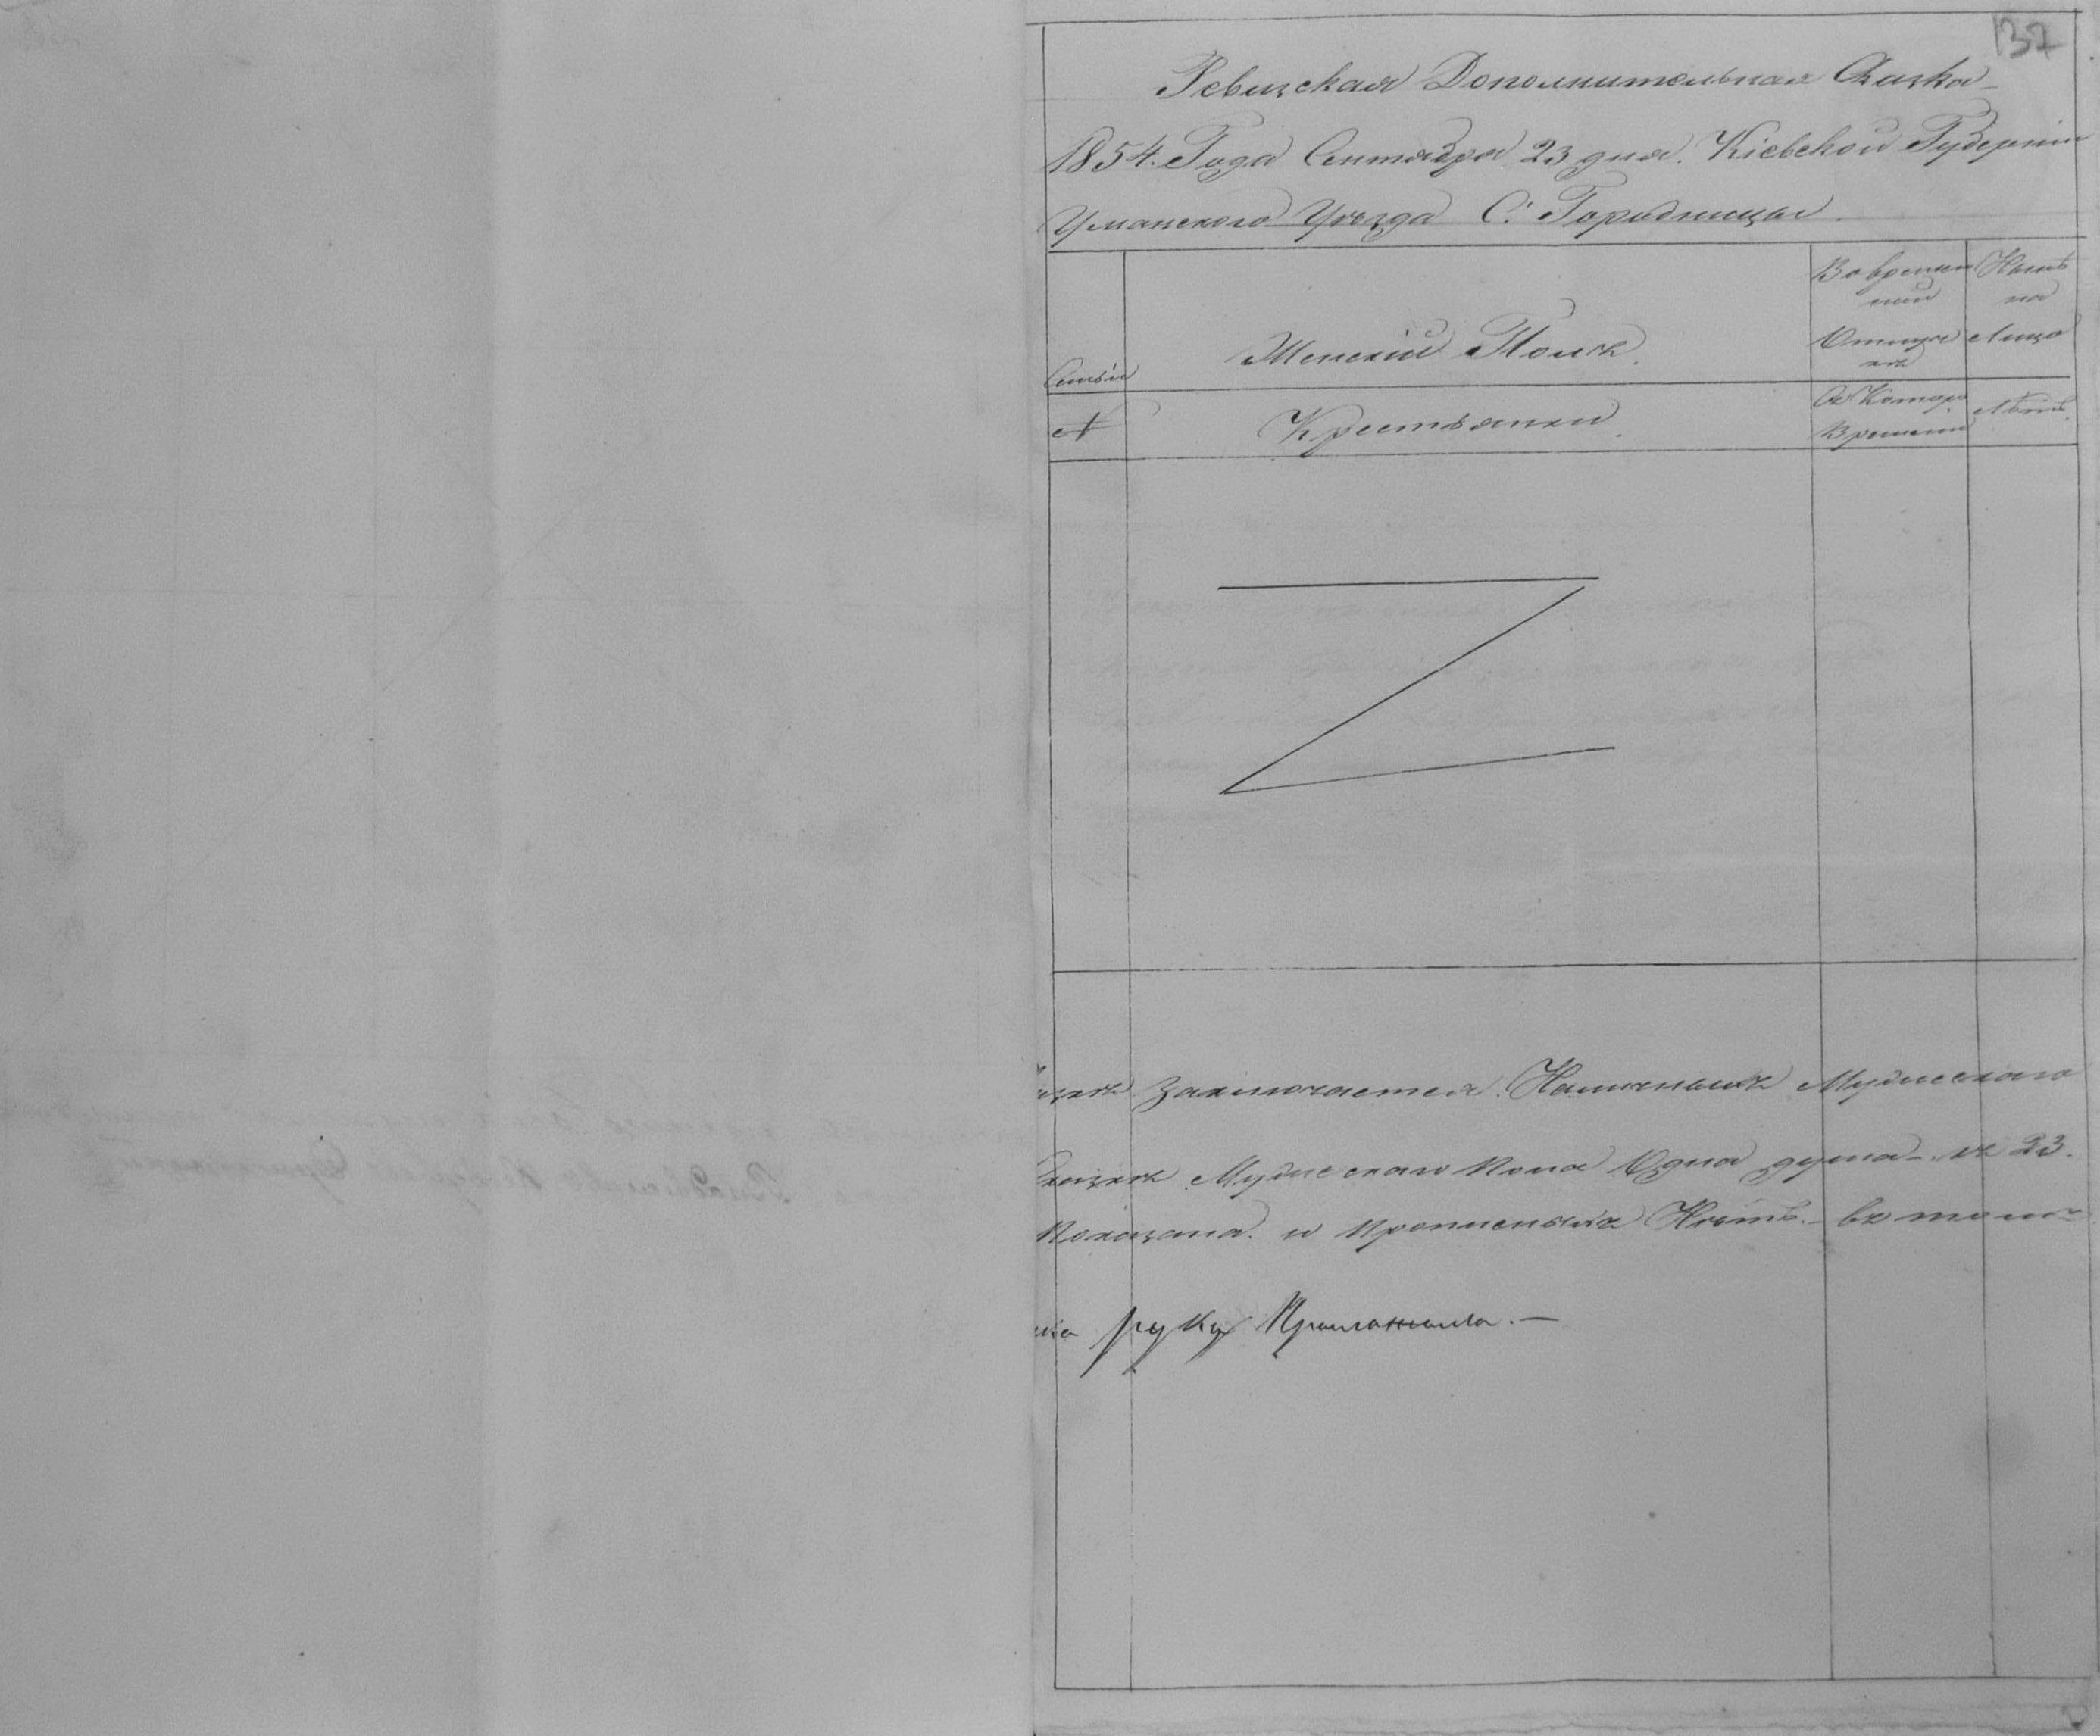 137
Ревизская Дополнительная Сказка
1854. Года Сентября 23 дня. Кіевской Губерніи
Уманского Уѣзда С. Городницы
Семьи
Женскій Полъ.
Во времен
ной
Отлуч
кѣ
Нынѣ
на
Лицо
№
Крестьянки
Съ Котораго
Времени
Лѣтъ.
заключается Наличныхъ Мужескаго
Мужескаго пола Одна душа 23.
Показана и Прописныхъ Нѣтъ. — въ томъ
руку Приложила. —